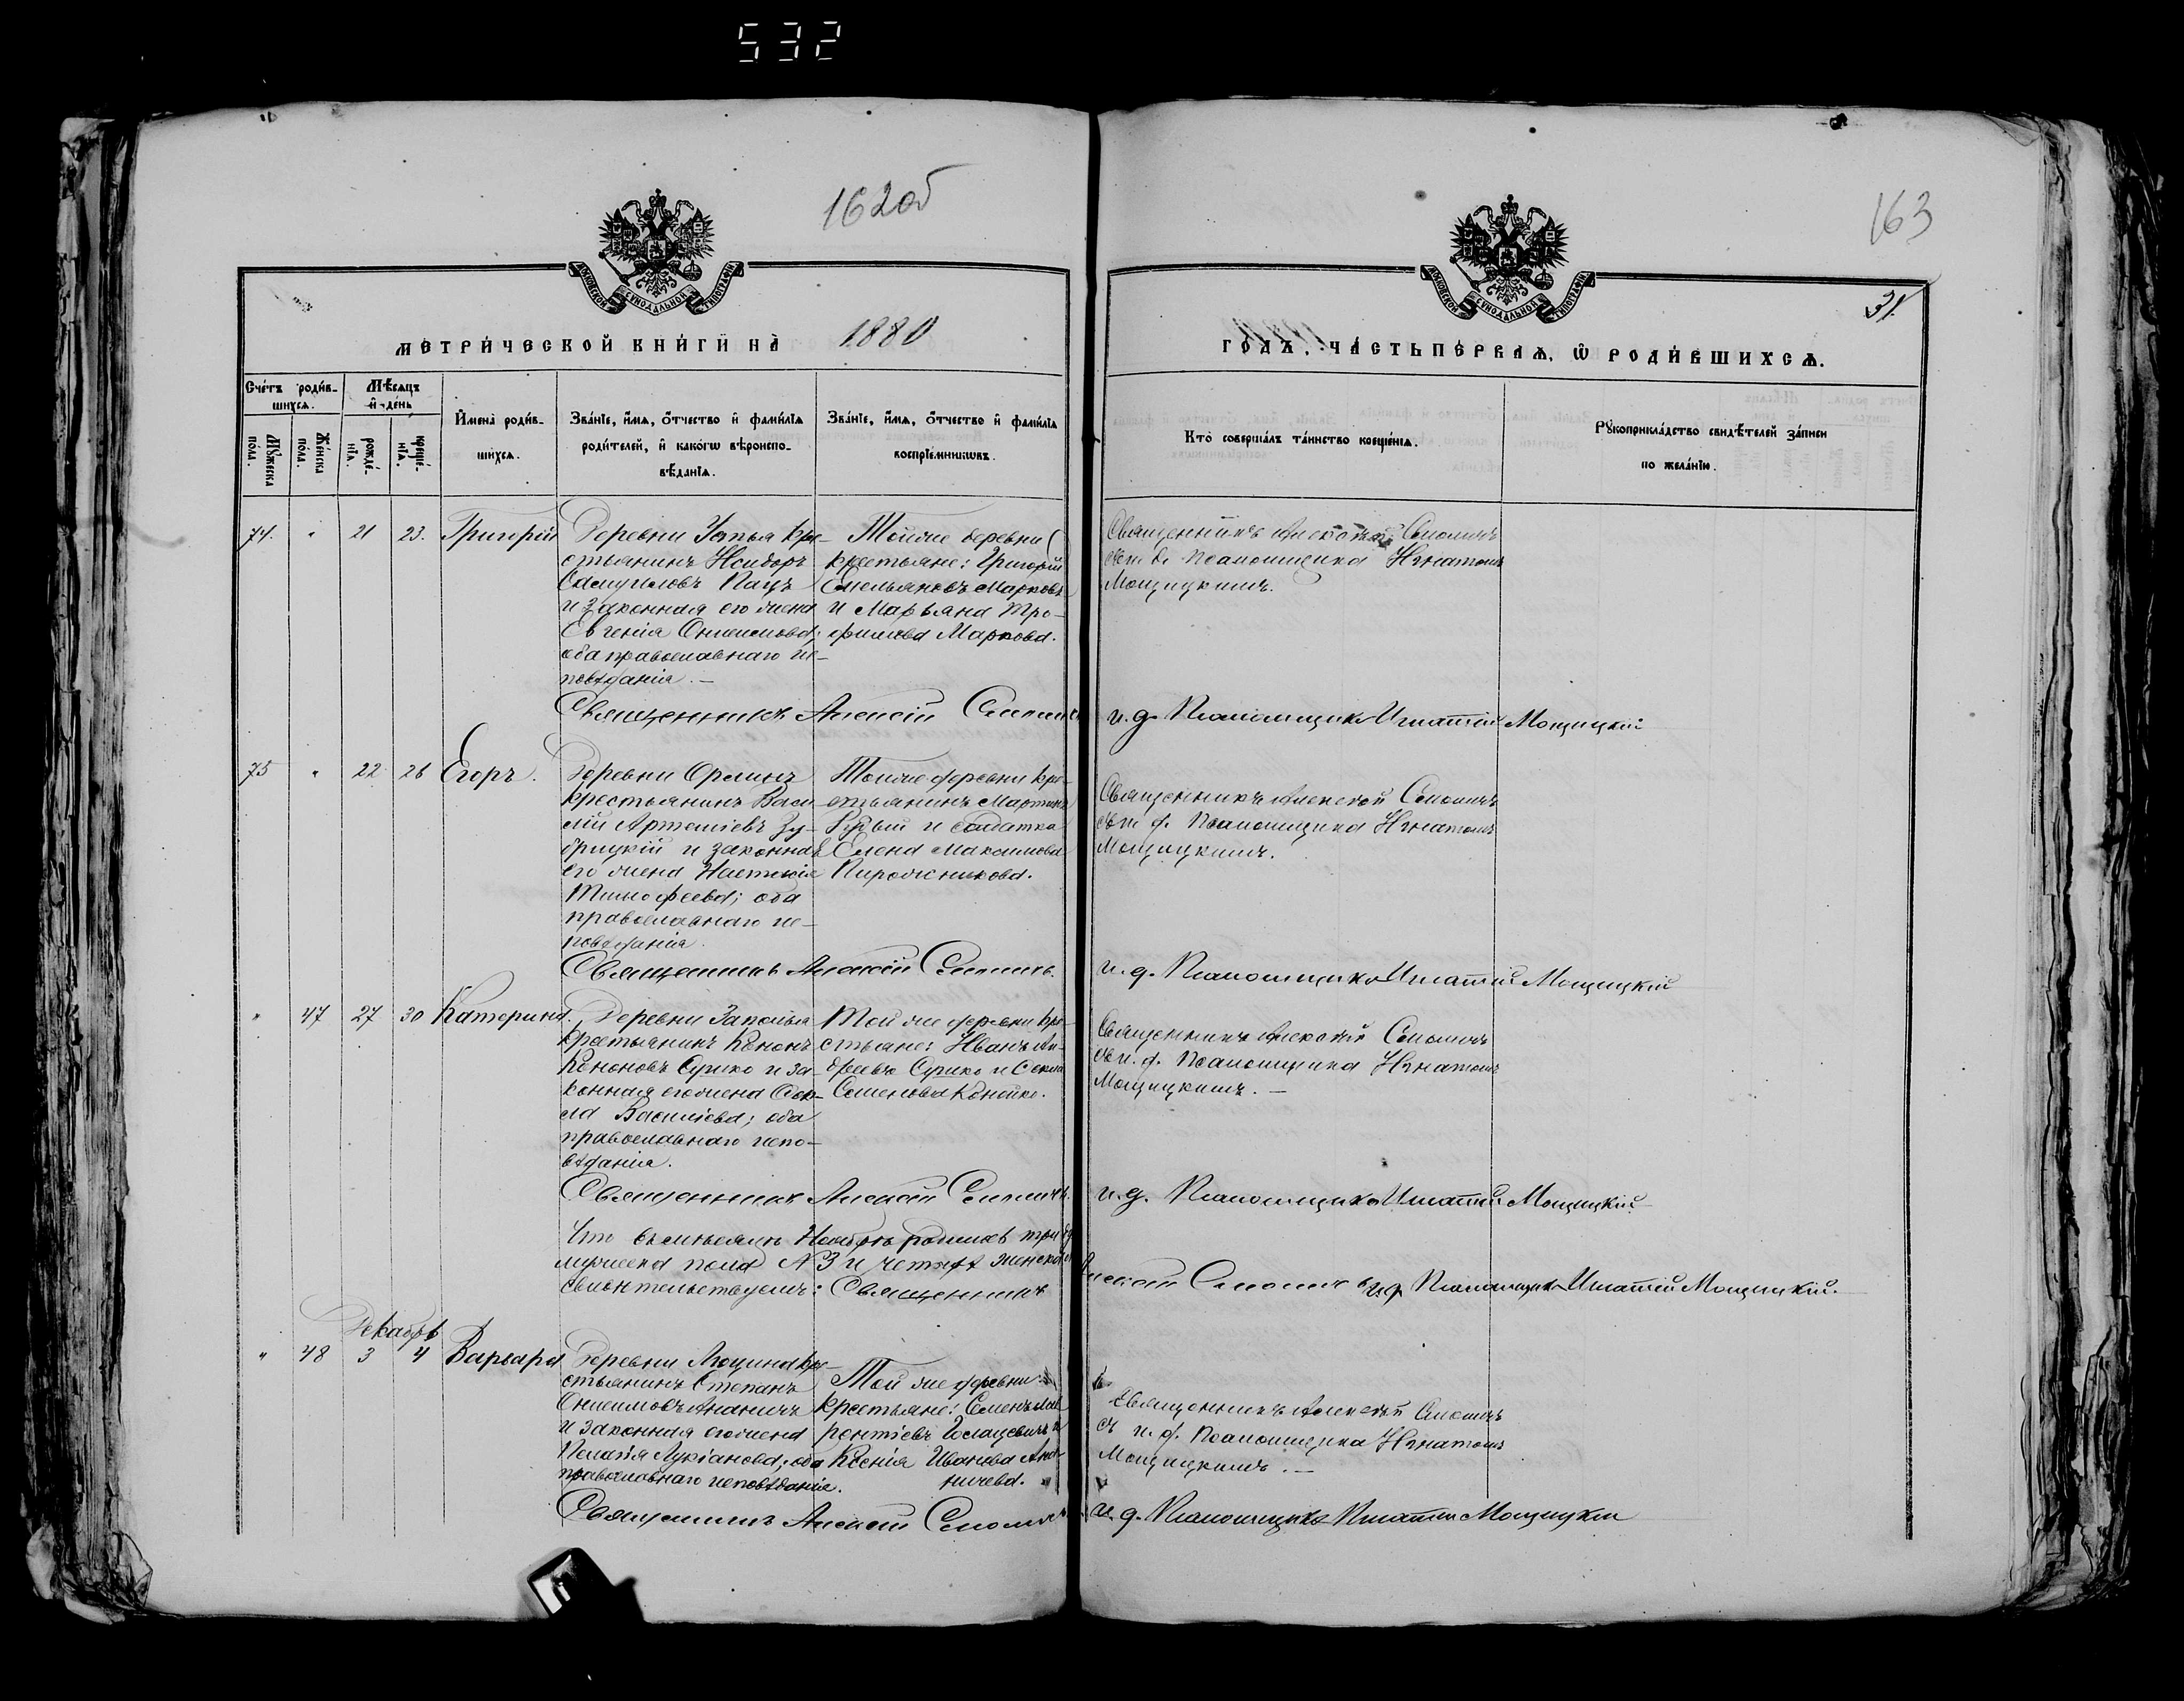 532
162об
163
31.
МОСКОВСКОЙ СѴНОДАЛЬНОЙ ТИПОГРАФІИ
МОСКОВСКОЙ СѴНОДАЛЬНОЙ ТИПОГРАФІИ
МЕТРИ́ЧЕСКОЙ КНИ́ГИ НА̀ 1880
ГО́ДЪ, ЧА́СТЬ ПЕ́РВАѦ, Ѽ РОДИ́ВШИХСѦ.
Сче́тъ роди́в-
шихсѧ.
Мѣ́сѧцъ
и҆ де́нь
Мꙋ́жеска по́ла.
Же́нска по́ла.
рожде́-
нїѧ.
креще́-
нїѧ.
И҆мена̀ роди́в-
шихсѧ.
Зва́нїе, и҆́мѧ, ѻ҆́тчество и҆ фами́лїѧ
роди́телей, и҆ како́гѡ вѣроиспо-
вѣ́данїѧ.
Зва́нїе, и҆́мѧ, ѻ҆́тчество и҆ фами́лїѧ
воспрїе́мникѡвъ.
Кто̀ соверша́лъ та́инство креще́нїѧ.
Рꙋкоприкла́дство свидѣ́телей за́писи
по жела́нїю.
74. " 21 23. Григорій
Деревни Устья кре-
стьянинъ Исидоръ
Самуиловъ Пацъ
и законная его жена
Евгенія Онисимова;
оба православнаго ис-
повѣданія. —
Тойже деревни
крестьяне: Григорій
Емельяновъ Марковъ
и Марьяна Тро-
фимова Маркова.
Священникъ Алексѣй Смоличъ
съ и. д. псаломщика Игнатомъ
Мощицкимъ.
Священникъ Алексій Смоличъ
и. д. Псаломщика Игнатій Мощицкій
75 " 22 26 Егоръ.
Деревни Орминъ
крестьянинъ Васи-
лій Артеміевъ Зу-
брицкій и законная
его жена Настасія
Тимофеева; оба
православнаго ис-
повѣданія.
Тойже деревни кре-
стьянинъ Мартинъ
и солдатка
Елена Максимова
Пирожникова.
Священникъ Алексѣй Смоличъ
съ и. д. Псаломщика Игнатомъ
Мощицкимъ.
Священникъ Алексій Смоличъ.
и. д. Псаломщика Игнатій Мощицкій
" 47 27 30 Катерина.
Деревни Заполья
крестьянинъ Кононъ
Кононовъ Сушко и за-
конная его жена Фек-
ла Васильева; оба
православнаго испо-
вѣданія.
Той же деревни кре-
стьяне: Иванъ Ан-
дреевъ Сушко и Фекла
Семенова Конойко.
Священникъ Алексѣй Смоличъ
съ и. д. Псаломщика Игнатомъ
Мощицкимъ. —
Священникъ Алексій Смоличъ.
и. д. Псаломщика Игнатій Мощицкій
Что въ мѣсяцѣ Ноябрѣ родилось три
мужеска пола № 3 и четыре женска
свидѣтельствуемъ: Священникъ
Алексій Смоличъ и. д. Псаломщика Игнатій Мощицкій.
Декабрь
" 48 3 4 Варвара
Деревни кре-
стьянинъ Степанъ
Онисимовъ Ананичъ
и законная его жена
Пелагія Лукіанова; оба
православнаго исповѣданія.
Той же деревни
крестьяне: Семенъ Лав-
рентіевъ и
Ксенія Иванова Ана-
ничева.
Священникъ Алексѣй Смоличъ
съ и. д. Псаломщика Игнатомъ
Мощицкимъ. —
Священникъ Алексій Смоличъ
и. д. Псаломщика Игнатій Мощицкій